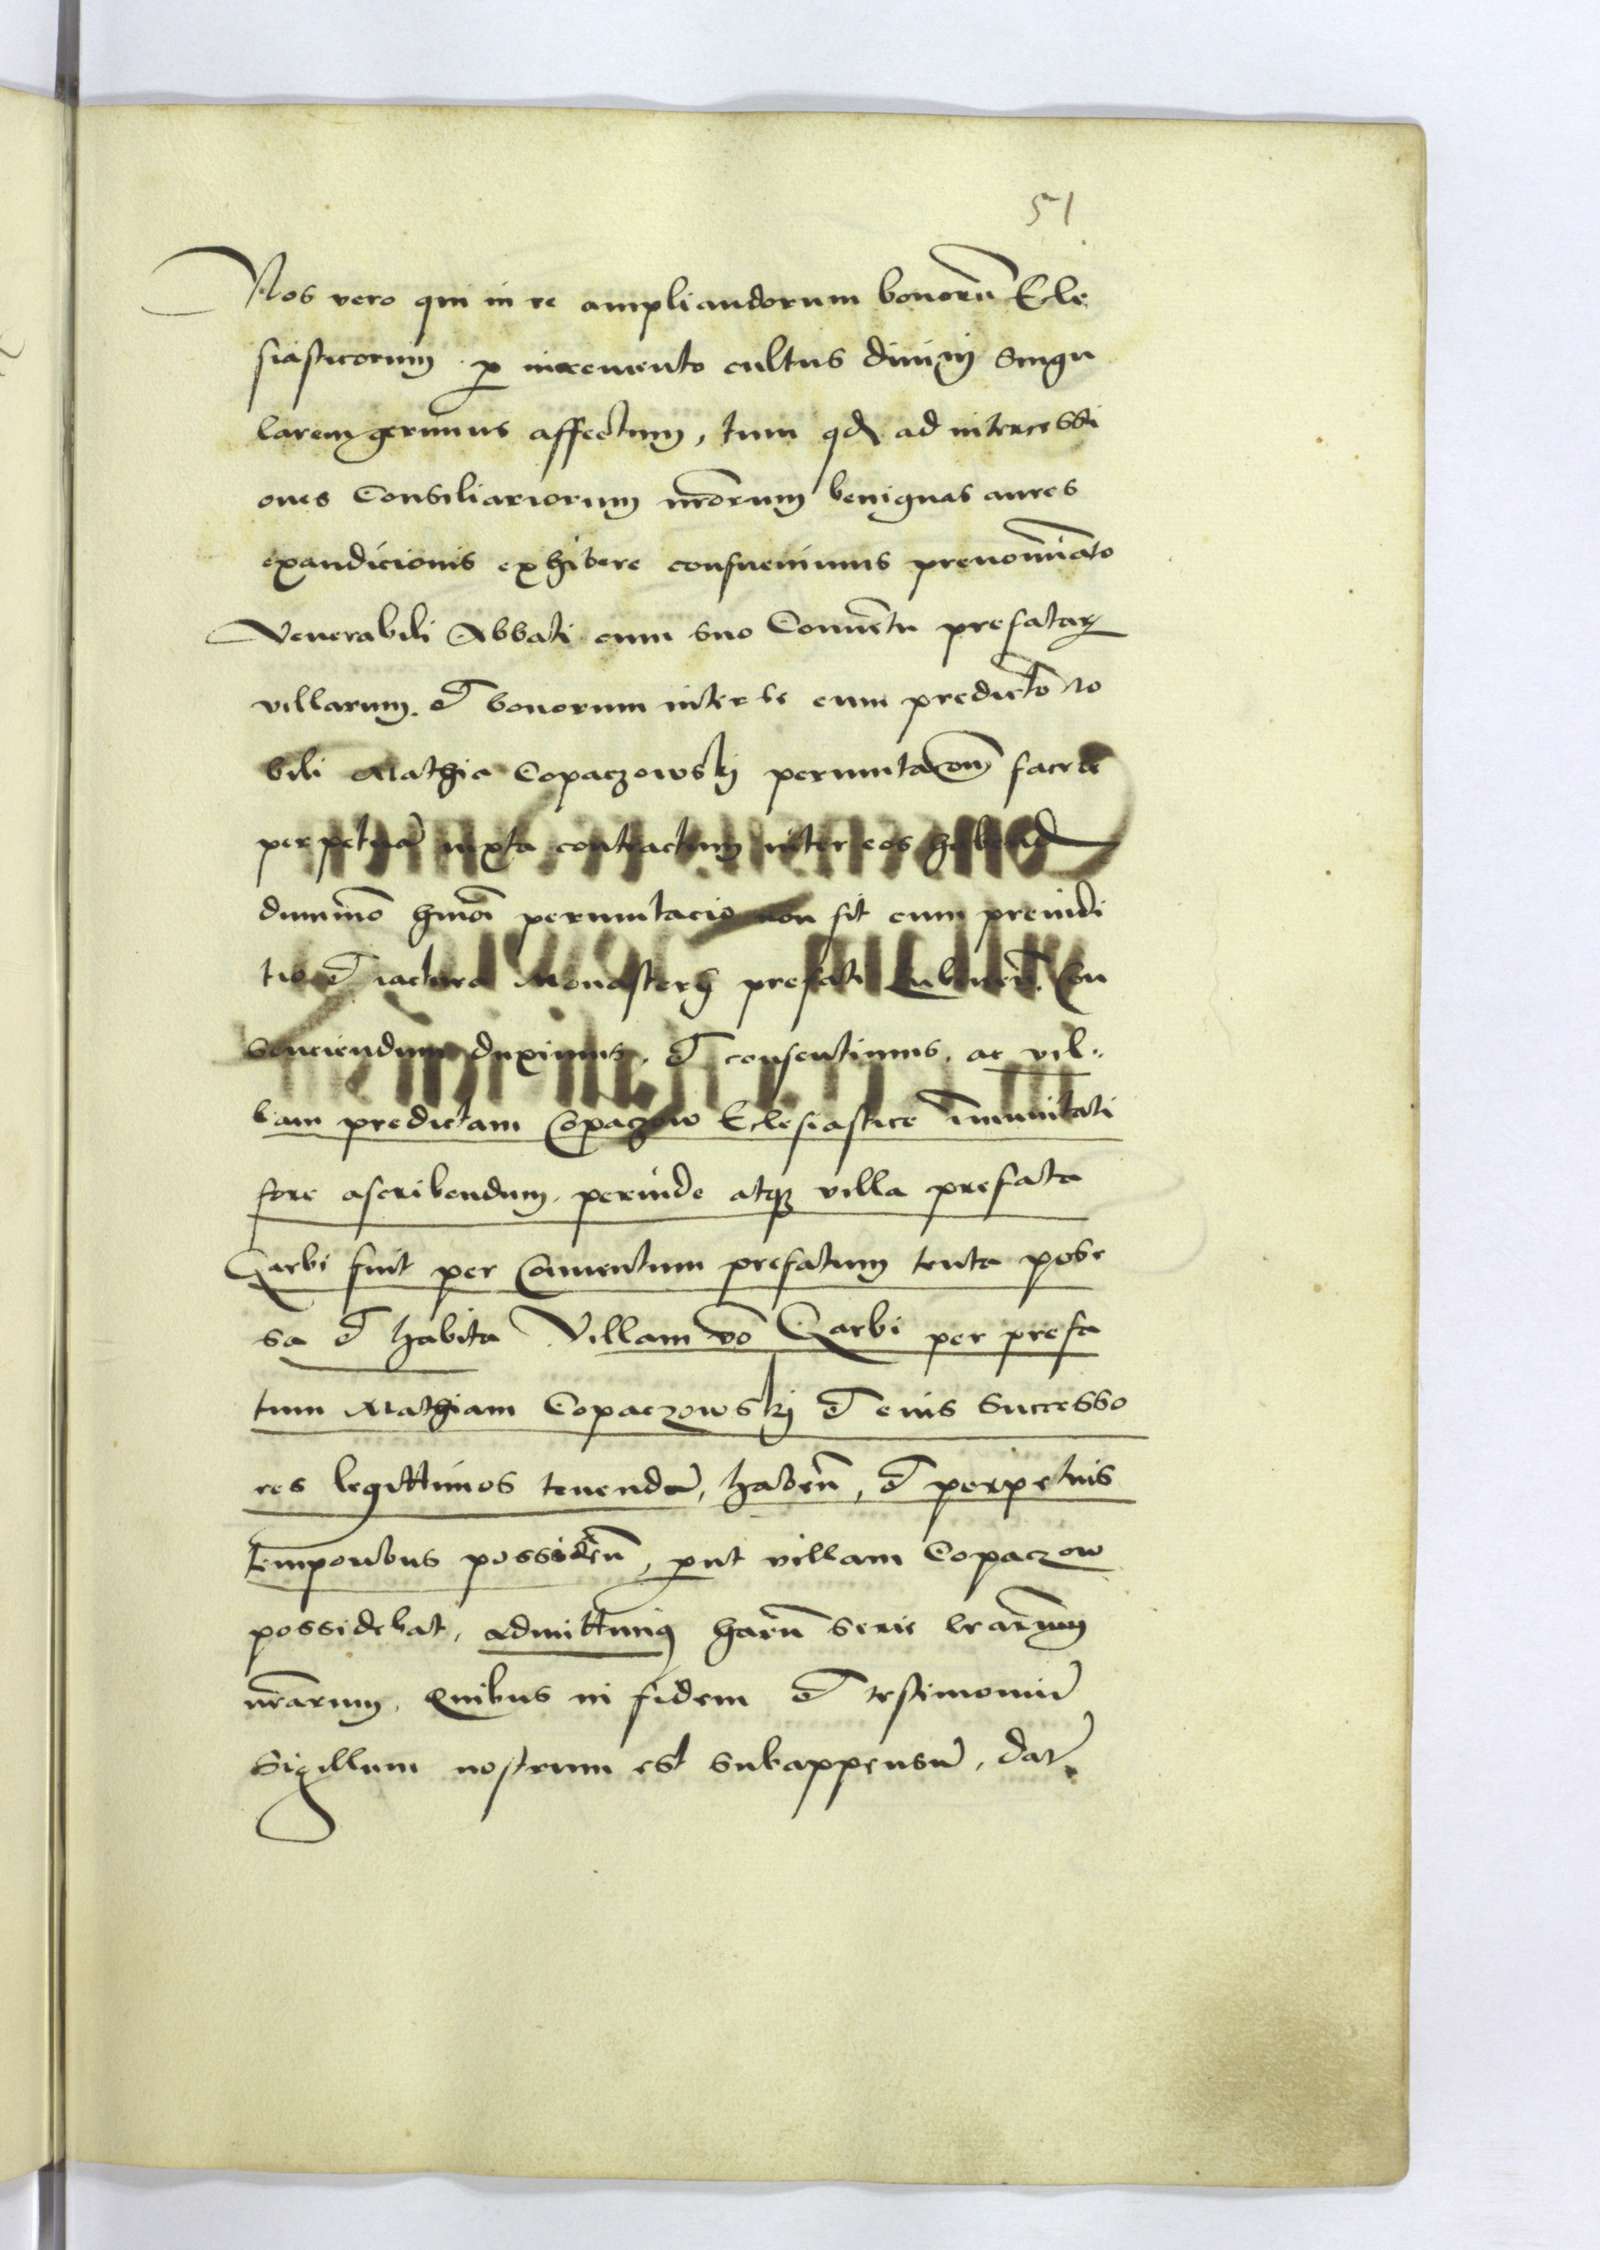 51
Nos vero qui in re ampliandorum bonorū Ecle
siasticorum p incremento cultus divinj Singu
larem gerimus affectum, tum qd ad intercessi
ones Consiliariorum nrorum benignas aures
exaudicionis exhibere consuevimus prenominato
Venerabili Abbati cum suo Conventu prefatarꝝ
villarum et bonorum inter se cum predicto No
bili Mathia Copaczowskj permutacōm facere
perpetuā iuxta contractum inter eos habend
dummō hmōi permutacio non sit cum preiudi
tio et iactura Monasterij prefati Lubineñ. Con
senciendum duximus, et consentimus, ac vil-
lam predictam Copaczow Eclesiastice immunitati
fore ascribendum, perinde atqꝫ villa prefata
Garbi fuit per Conventum prefatum tenta posse
sa et habita Villam vō Garbi per prefa
tum Mathiam Copaczowskj et eius Successo
res legittimos tenendā, habeñ, et perpetuis
temporibus possideñ, put villam Copaczow
possidebat, admittimꝰ harū serie lrarum
nrarum, Quibus in fidem et testimoniū
Sigillum nostrum est subappensū, Dat